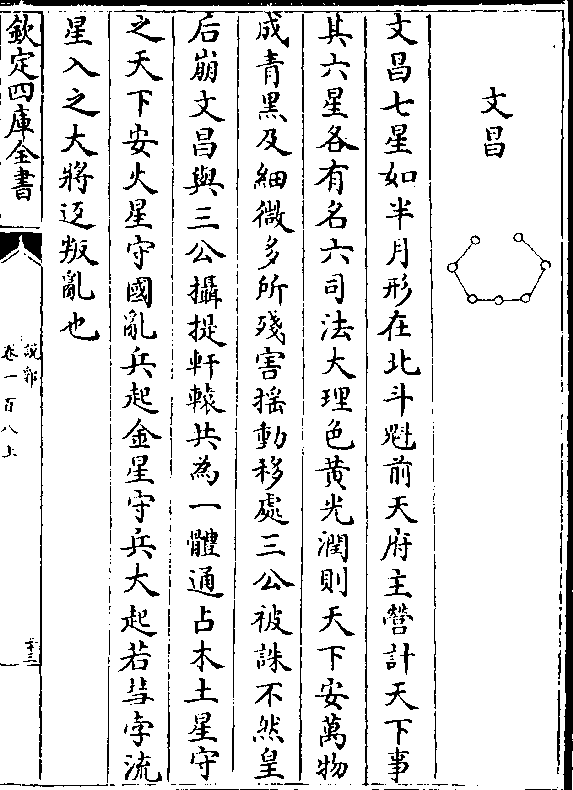 文昌
文昌七星如半月形在北斗魁前天府主營計天下事
其六星各有名六司法大理色黃光潤則天下安萬物
成青黑及細微多所殘害揺動移處三公被誅不然皇
后崩文昌與三公攝提軒轅共為一體通占木土星守
之天下安火星守國亂兵起金星守兵大起若彗孛流
星入之大將返叛亂也
欽定四庫全書
說郛
卷一百八上